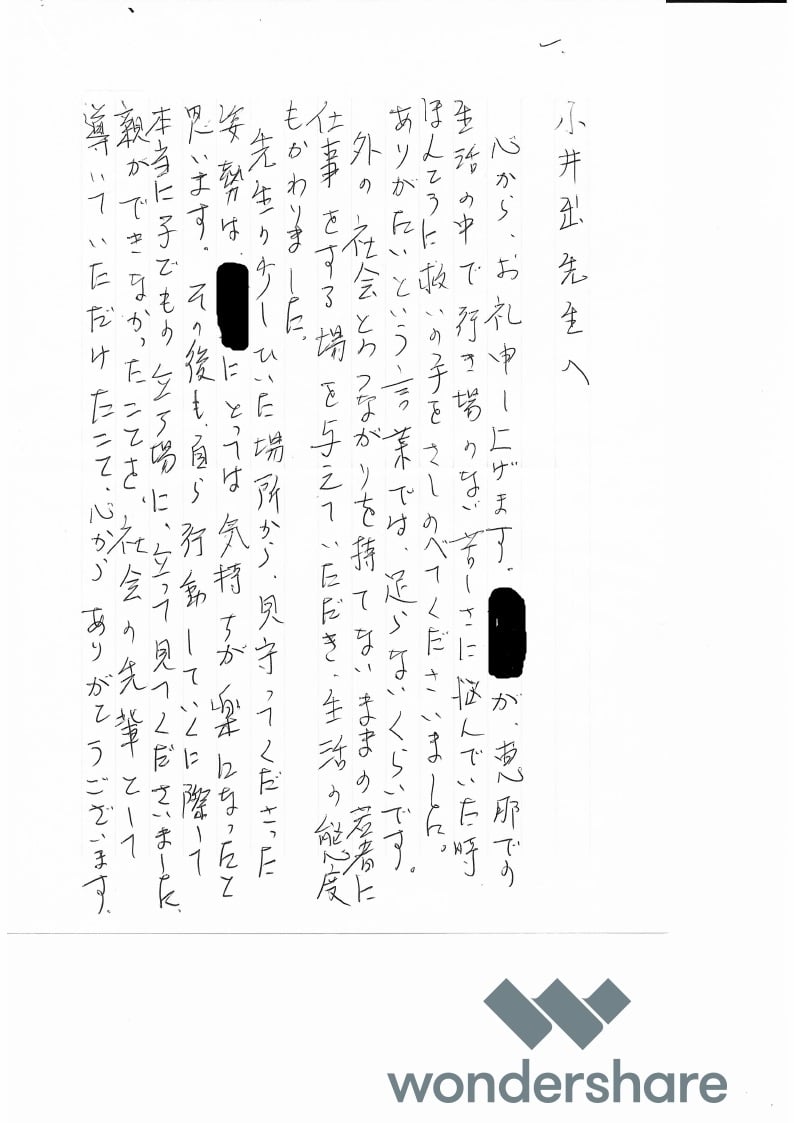 一.
小井出先生へ
心から、お礼申し上げます。 が、恵那での
生活の中で行き場のない苦しさに悩んでいた時
ほんとうに救いの手をさしのべてくださいました。
ありがたいという言葉では、足らないくらいです。
外の社会とのつながりを持てないままの若者に
仕事をする場を与えていただき、生活の態度
もかわりました。
先生の少しひいた場所から、見守ってくださった
姿勢は、 にとっては気持ちが楽になったと
思います。その後も、自ら行動していくに際して
本当に子でもの立ち場に、立って見てくださいました。
親ができなかったことを、社会の先輩として
導いていただけたこと、心からありがとうございます。
wondershare